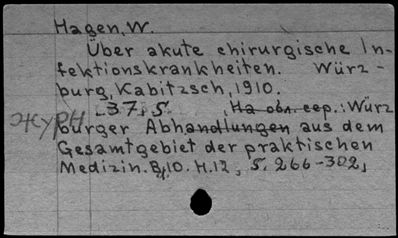 Hagen, W.
Über akute chirurgische In-
fektionskrankheiten. Würz-
burg, Kabitzsch, 1910.
37, S. , На обл. сер.: Würz
burger Abhandlungen aus dem
Gesamtgebiet der praktischen
Medizin. B. 10. H. 12, S. 266-302,